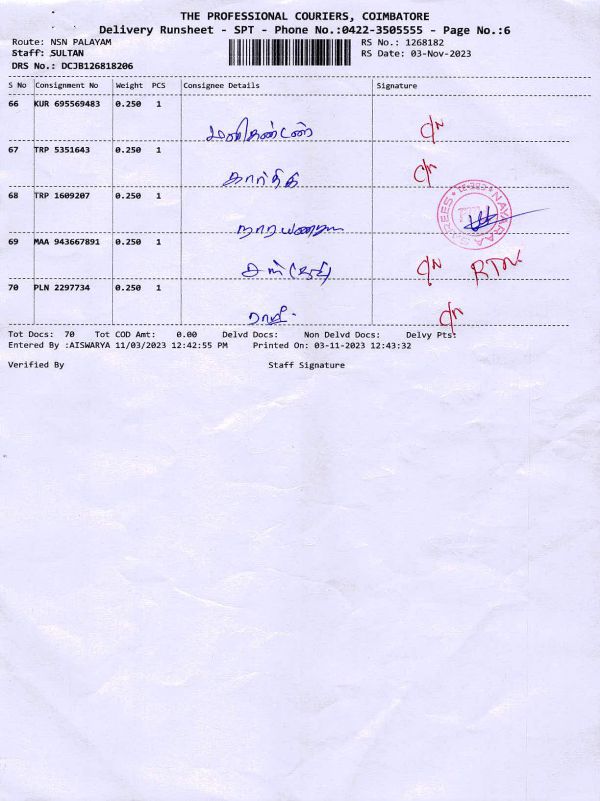 THE PROFESSIONAL COURIERS, COIMBATORE
Delivery Runsheet - SPT - Phone No.:0422-3505555 - Page No.:6
Route: NSN PALAYAM RS No.: 1268182
Staff: SULTAN RS Date: 03-Nov-2023
DRS No.: DCJB126818206
S No Consignment No Weight PCS Consignee Details Signature
66 KUR 695569483 0.250 1
மணிகண்டன் C/N
67 TRP 5351643 0.250 1
கார்த்தி C/N
68 TRP 1609207 0.250 1
NAVARAA SAREES
69 MAA 943667891 0.250 1
C/N RTN
70 PLN 2297734 0.250 1
C/N
Tot Docs: 70 Tot COD Amt: 0.00 Delvd Docs: Non Delvd Docs: Delvy Pts:
Entered By :AISWARYA 11/03/2023 12:42:55 PM Printed On: 03-11-2023 12:43:32
Verified By Staff Signature